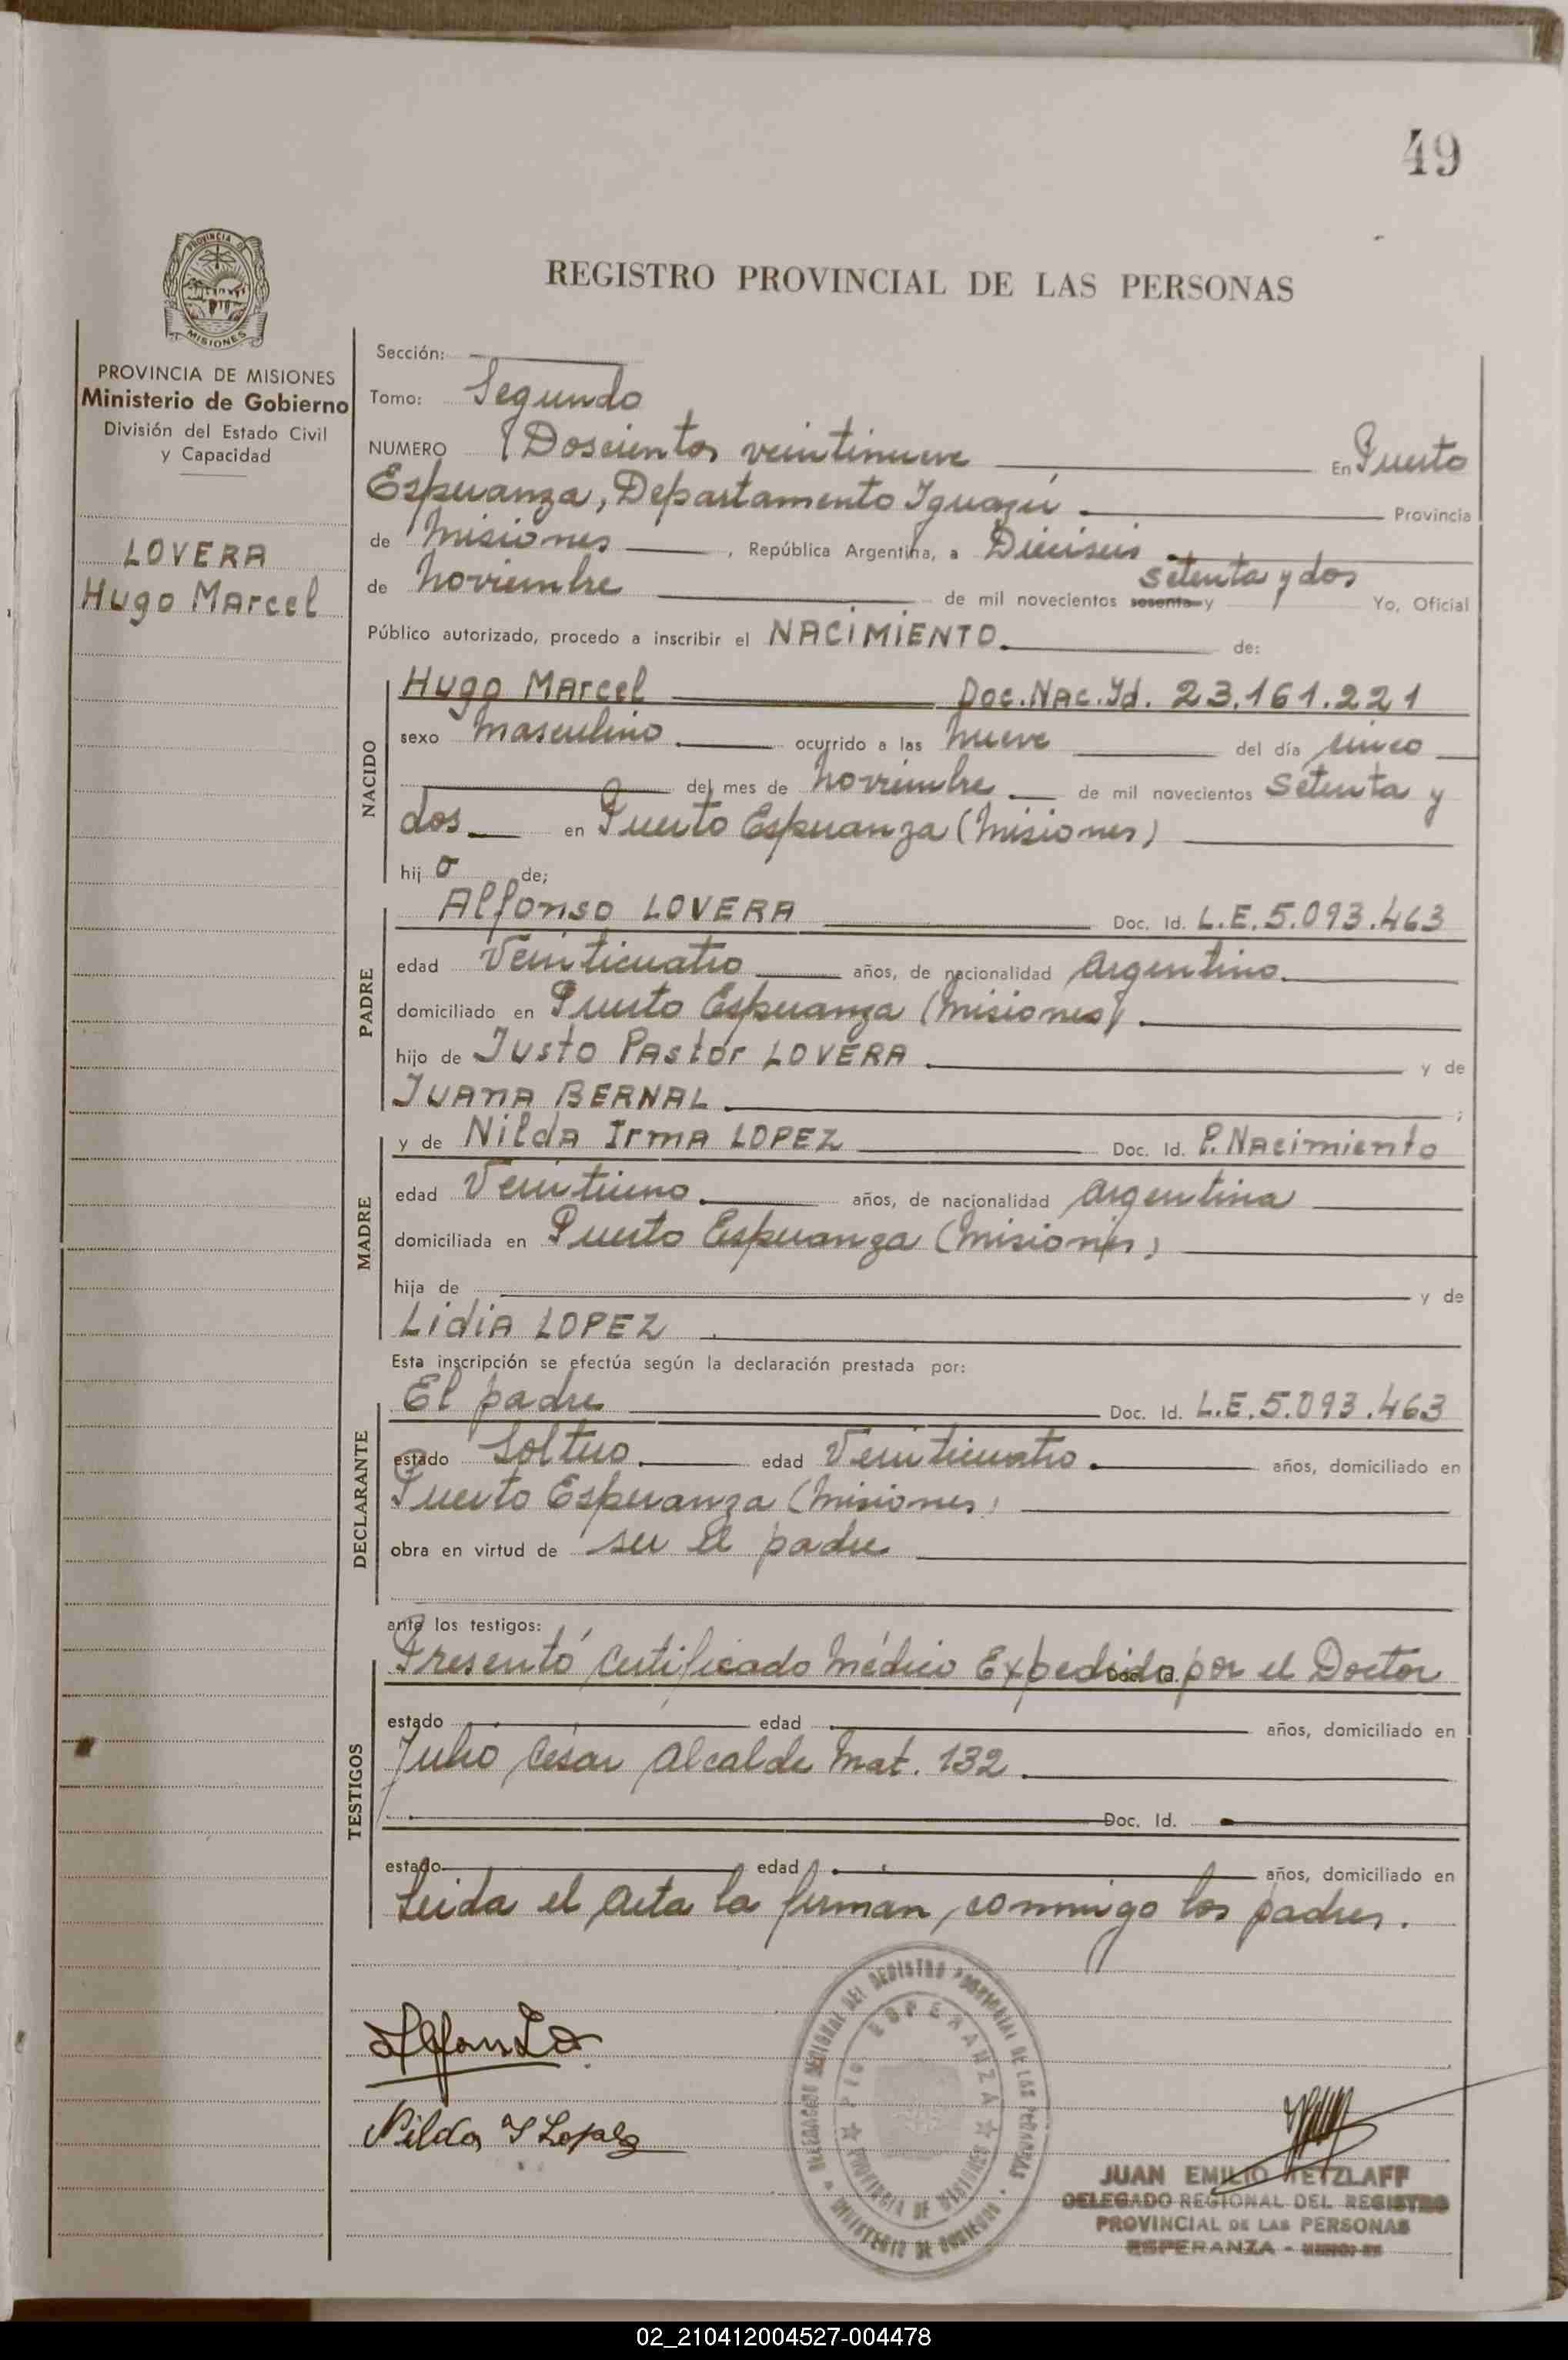 49
PROVINCIA DE
MISIONES
REGISTRO PROVINCIAL DE LAS PERSONAS
PROVINCIA DE MISIONES
Ministerio de Gobierno
División del Estado Civil
y Capacidad
LOVERA
Hugo Marcel
Sección:
Tomo: Segundo
NUMERO (Doscientos veintinueve En Puerto
Esperanza, Departamento Iguazú Provincia
de Misiones , República Argentina, a Dieciseis
setenta y dos
de Noviembre de mil novecientos sesenta y Yo, Oficial
Público autorizado, procedo a inscribir el NACIMIENTO. de:
NACIDO
Hugo Marcel Doc.Nac.Id. 23.161.221
sexo Masculino. ocurrido a las nueve del día
del mes de Noviembre. de mil novecientos Setenta y
dos. en Puerto Esperanza (Misiones)
hij o de;
PADRE
Alfonso LOVERA Doc. Id. L.E. 5.093.463
edad Veinticuatro años, de nacionalidad Argentino.
domiciliado en Puerto Esperanza (Misiones).
hijo de Justo Pastor LOVERA. y de
Juana BERNAL. ;
MADRE
y de Nilda Irma LOPEZ Doc. Id. P. Nacimiento
edad Veintiuno. años, de nacionalidad Argentina
domiciliada en Puerto Esperanza (Misiones)
hija de y de
Lidia LOPEZ .
Esta inscripción se efectúa según la declaración prestada por:
DECLARANTE
El padre Doc. Id. L.E. 5.093.463
estado Soltero. edad Veinticuatro. años, domiciliado en
Puerto Esperanza (Misiones)
obra en virtud de ser el padre
ante los testigos:
TESTIGOS
Presentó Certificado Médico Expedido por el Doctor
Doc. Id.
estado edad años, domiciliado en
Julio César Alcalde Mat. 132.
Doc. Id.
estado edad años, domiciliado en
Leida el Acta la firman, conmigo los padres.
Nilda I Lopez
DELEGACION REGIONAL DEL REGISTRO PROVINCIAL DE LAS PERSONAS
MINISTERIO DE GOBIERNO
PTO ESPERANZA
PROVINCIA DE MISIONES
JUAN EMILIO TETZLAFF
DELEGADO REGIONAL DEL REGISTRO
PROVINCIAL DE LAS PERSONAS
ESPERANZA -
02_210412004527-004478